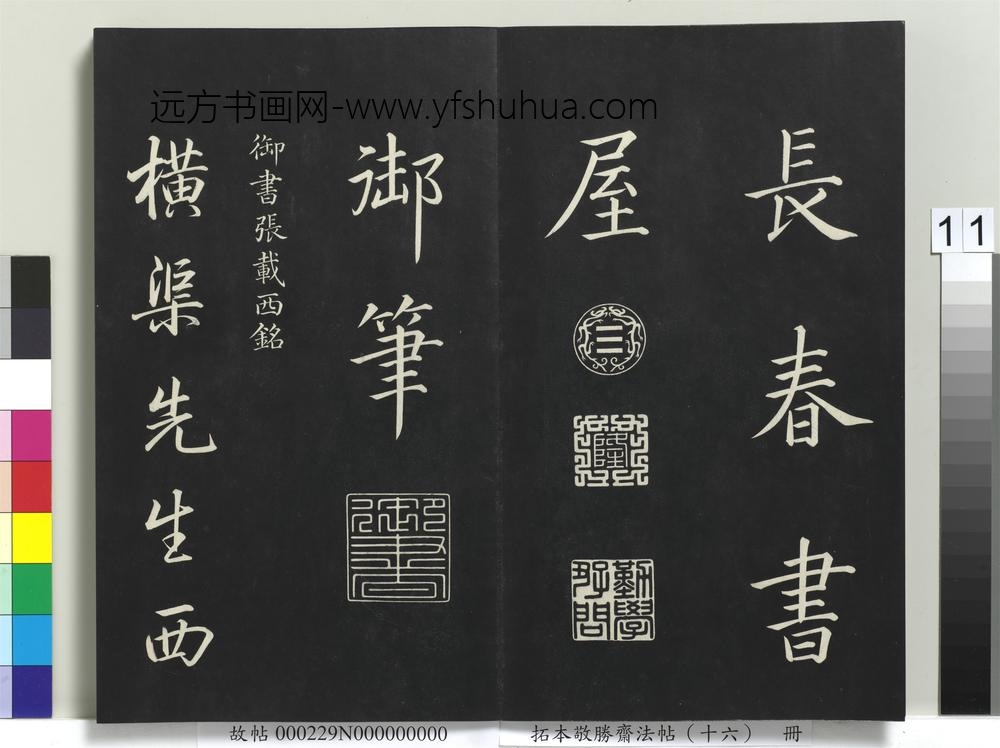 远方书画网-www.yfshuhua.com
長春書
屋
乾
隆
勤學
好問
御筆
御書
御書張載西銘
橫渠先生西
11
故帖 000229N000000000
拓本敬勝齋法帖（十六） 冊